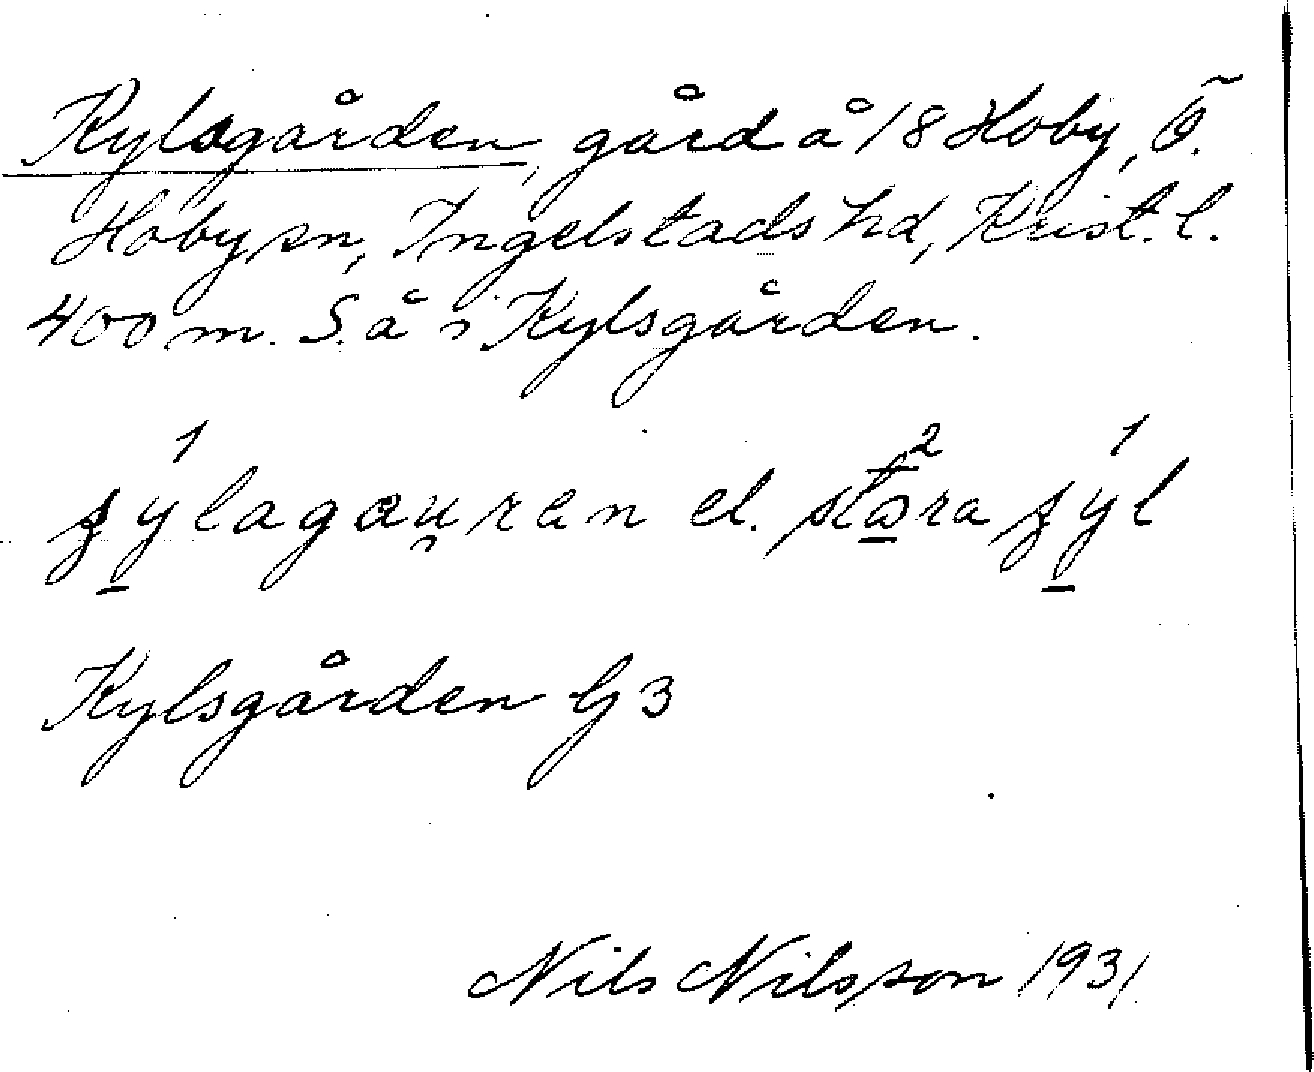 Kylsgården, gård å 18 Hoby, Ö.
Hoby sn, Ingelstads hd, Krist. l.
400 m. S. å i Kylsgården.
el.
Kylsgården G 3
Nils Nilsson 1931